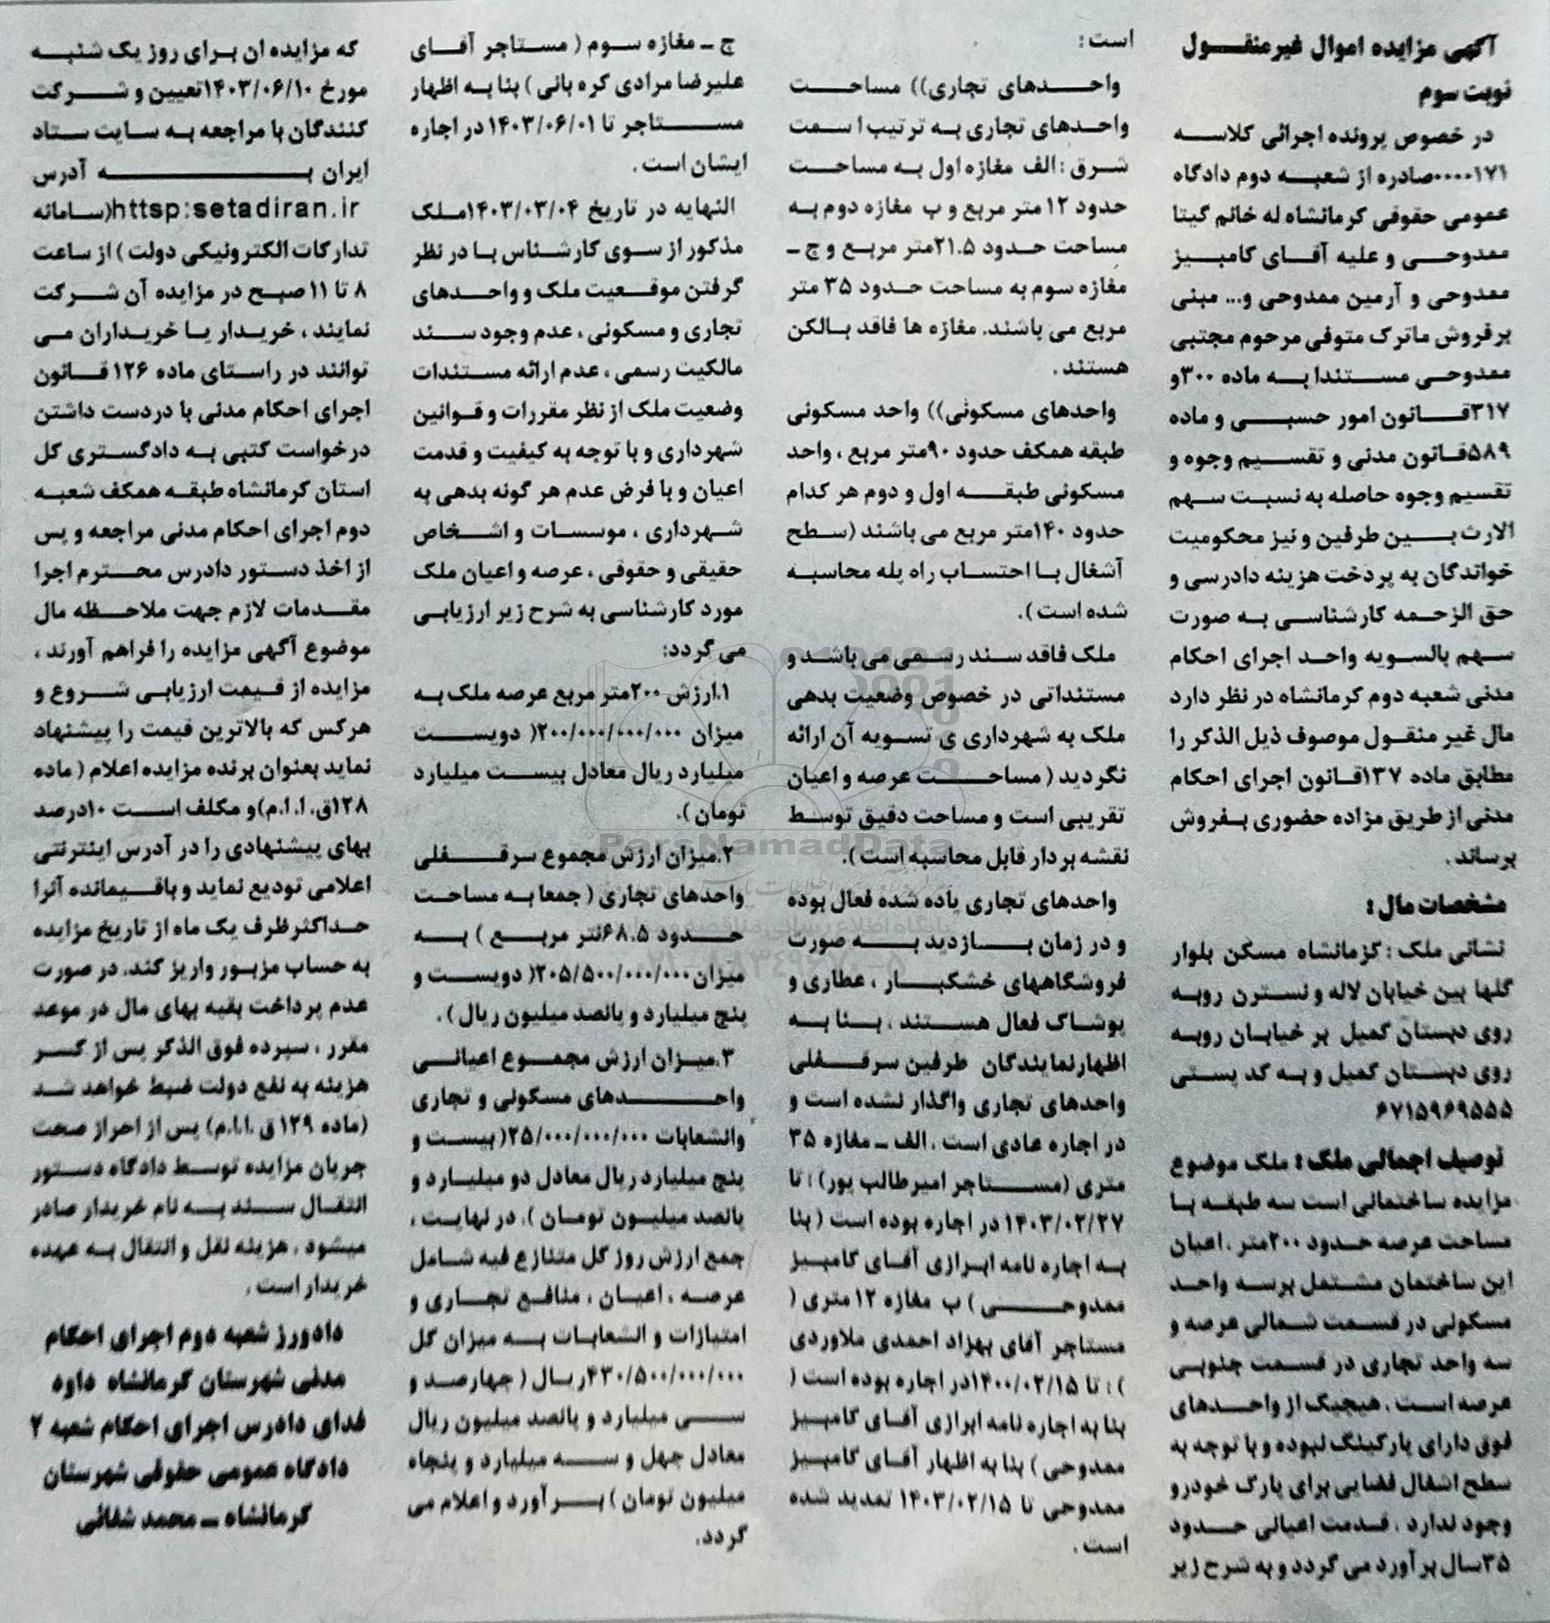 آگهی مزایده اموال غیرمنقول
نوبت سوم
در خصوص پرونده اجرائی کلاسه
۰۰۰۰۱۷۱صادره از شعبه دوم دادگاه
عمومی حقوقی کرمانشاه له خانم گیتا
ممدوحی و علیه آقای کامبیز
ممدوحی و آرمین ممدوحی و... مبنی
برفروش ماترک متوفی مرحوم مجتبی
ممدوحی مستندا به ماده ۳۰۰و
۳۱۷قانون امور حسبی و ماده
۵۸۹قانون مدنی و تقسیم وجوه و
تقسیم وجوه حاصله به نسبت سهم
الارث بین طرفین و نیز محکومیت
خواندگان به پردخت هزینه دادرسی و
حق الزحمه کارشناسی به صورت
سهم بالسویه واحد اجرای احکام
مدنی شعبه دوم کرمانشاه در نظر دارد
مال غیر منقول موصوف ذیل الذکر را
مطابق ماده ۱۳۷قانون اجرای احکام
مدنی از طریق مزاده حضوری بفروش
برساند.
مشخصات مال :
نشانی ملک : کزمانشاه مسکن بلوار
گلها بین خیابان لاله و نسترن روبه
روی دبستان کمیل بر خیابان روبه
روی دبستان کمیل و به کد پستی
۶۷۱۵۹۶۹۵۵۵
توصیف اجمالی ملک : ملک موضوع
مزایده ساختمانی است سه طبقه با
مساحت عرصه حدود ۲۰۰متر . اعیان
این ساختمان مشتمل برسه واحد
مسکونی در قسمت شمالی عرصه و
سه واحد تجاری در قسمت جنوبی
عرصه است . هیچیک از واحدهای
فوق دارای پارکینگ نبوده و با توجه به
سطح اشغال فضایی برای پارک خودرو
وجود ندارد . قدمت اعیانی حدود
۳۵سال برآورد می گردد و به شرح زیر
است :
واحدهای تجاری)) مساحت
واحدهای تجاری به ترتیب ا سمت
شرق : الف مغازه اول به مساحت
حدود ۱۲ متر مربع و ب مغازه دوم به
مساحت حدود ۲۱.۵متر مربع و ج ـ
مغازه سوم به مساحت حدود ۳۵ متر
مربع می باشند. مغازه ها فاقد بالکن
هستند .
واحدهای مسکونی)) واحد مسکونی
طبقه همکف حدود ۹۰متر مربع ، واحد
مسکونی طبقه اول و دوم هر کدام
حدود ۱۴۰متر مربع می باشند (سطح
آشغال با احتساب راه پله محاسبه
شده است ).
ملک فاقد سند رسمی می باشد و
مستنداتی در خصوص وضعیت بدهی
ملک به شهرداری ی تسویه آن ارائه
نگردید ( مساحت عرصه و اعیان
تقریبی است و مساحت دقیق توسط
نقشه بردار قابل محاسبه است ).
واحدهای تجاری یاده شده فعال بوده
و در زمان بازدید به صورت
فروشگاههای خشکبار ، عطاری و
پوشاک فعال هستند ، بنا به
اظهارنمایندگان طرفین سرقفلی
واحدهای تجاری واگذار نشده است و
در اجاره عادی است . الف ـ مغازه ۳۵
متری (مستاجر امیرطالب پور) : تا
۱۴۰۳/۰۲/۲۷ در اجاره بوده است ( بنا
به اجاره نامه ابرازی آقای کامبیز
ممدوحی ) ب مغازه ۱۲ متری (
مستاجر آقای بهزاد احمدی ملاوردی
) : تا ۱۴۰۰/۰۲/۱۵در اجاره بوده است (
بنا به اجاره نامه ابرازی آقای کامبیز
ممدوحی ) بنا به اظهار آقای کامبیز
ممدوحی تا ۱۴۰۳/۰۲/۱۵ تمدید شده
است .
ج ـ مغازه سوم ( مستاجر آقای
علیرضا مرادی کره بانی ) بنا به اظهار
مستاجر تا ۱۴۰۳/۰۶/۰۱ در اجاره
ایشان است .
النهایه در تاریخ ۱۴۰۳/۰۳/۰۴ملک
مذکور از سوی کارشناس با در نظر
گرفتن موقعیت ملک و واحدهای
تجاری و مسکونی ، عدم وجود سند
مالکیت رسمی ، عدم ارائه مستندات
وضعیت ملک از نظر مقررات و قوانین
شهرداری و با توجه به کیفیت و قدمت
اعیان و با فرض عدم هر گونه بدهی به
شهرداری ، موسسات و اشخاص
حقیقی و حقوقی ، عرصه و اعیان ملک
مورد کارشناسی به شرح زیر ارزیابی
می گردد:
۱.ارزش ۲۰۰متر مربع عرصه ملک به
میزان ۲۰۰/۰۰۰/۰۰۰/۰۰۰( دویست
میلیارد ریال معادل بیست میلیارد
تومان ).
۲.میزان ارزش مجموع سرقفلی
واحدهای تجاری ( جمعا به مساحت
حدود ۶۸.۵نتر مربع ) به
میزان۲۰۵/۵۰۰/۰۰۰/۰۰۰( دویست و
پنج میلیارد و پانصد میلیون ریال ) .
۳.میزان ارزش مجموع اعیانی
واحدهای مسکونی و تجاری
وانشعابات ۲۵/۰۰۰/۰۰۰/۰۰۰( بیست و
پنج میلیارد ریال معادل دو میلیارد و
پانصد میلیون تومان ). در نهایت ،
جمع ارزش روز کل متنازع فیه شامل
عرصه ، اعیان ، منافع تجاری و
امتیازات و انشعابات به میزان کل
۴۳۰/۵۰۰/۰۰۰/۰۰۰ریال ( چهارصد و
سی میلیارد و پانصد میلیون ریال
معادل چهل و سه میلیارد و پنجاه
میلیون تومان ) برآورد و اعلام می
گردد.
که مزایده ان برای روز یک شنبه
مورخ ۱۴۰۳/۰۶/۱۰تعیین و شرکت
کنندگان با مراجعه به سایت ستاد
ایران به آدرس
httsp:setadiran.ir(سامانه
تدارکات الکترونیکی دولت ) از ساعت
۸ تا ۱۱ صبح در مزایده آن شرکت
نمایند ، خریدار یا خریداران می
توانند در راستای ماده ۱۲۶ قانون
اجرای احکام مدنی با دردست داشتن
درخواست کتبی به دادگستری کل
استان کرمانشاه طبقه همکف شعبه
دوم اجرای احکام مدنی مراجعه و پس
از اخذ دستور دادرس محترم اجرا
مقدمات لازم جهت ملاحظه مال
موضوع آگهی مزایده را فراهم آورند ،
مزایده از قیمت ارزیابی شروع و
هرکس که بالاترین قیمت را پیشنهاد
نماید بعنوان برنده مزایده اعلام ( ماده
۱۲۸ق.ا.ا.م)و مکلف است ۱۰درصد
بهای پیشنهادی را در آدرس اینترنتی
اعلامی تودیع نماید و باقیمانده آنرا
حداکثرظرف یک ماه از تاریخ مزایده
به حساب مزبور واریز کند. در صورت
عدم پرداخت بقیه بهای مال در موعد
مقرر ، سپرده فوق الذکر پس از کسر
هزینه به نفع دولت ضبط خواهد شد
(ماده ۱۲۹ ق.ا.ا.م) پس از احراز صحت
جریان مزایده توسط دادگاه دستور
انتقال سند به نام خریدار صادر
میشود . هزینه نقل و انتقال به عهده
خریدار است .
دادورز شعبه دوم اجرای احکام
مدنی شهرستان کرمانشاه داوه
فدای دادرس اجرای احکام شعبه ۲
دادگاه عمومی حقوقی شهرستان
کرمانشاه ـ محمد شفائی
ParsNamadData